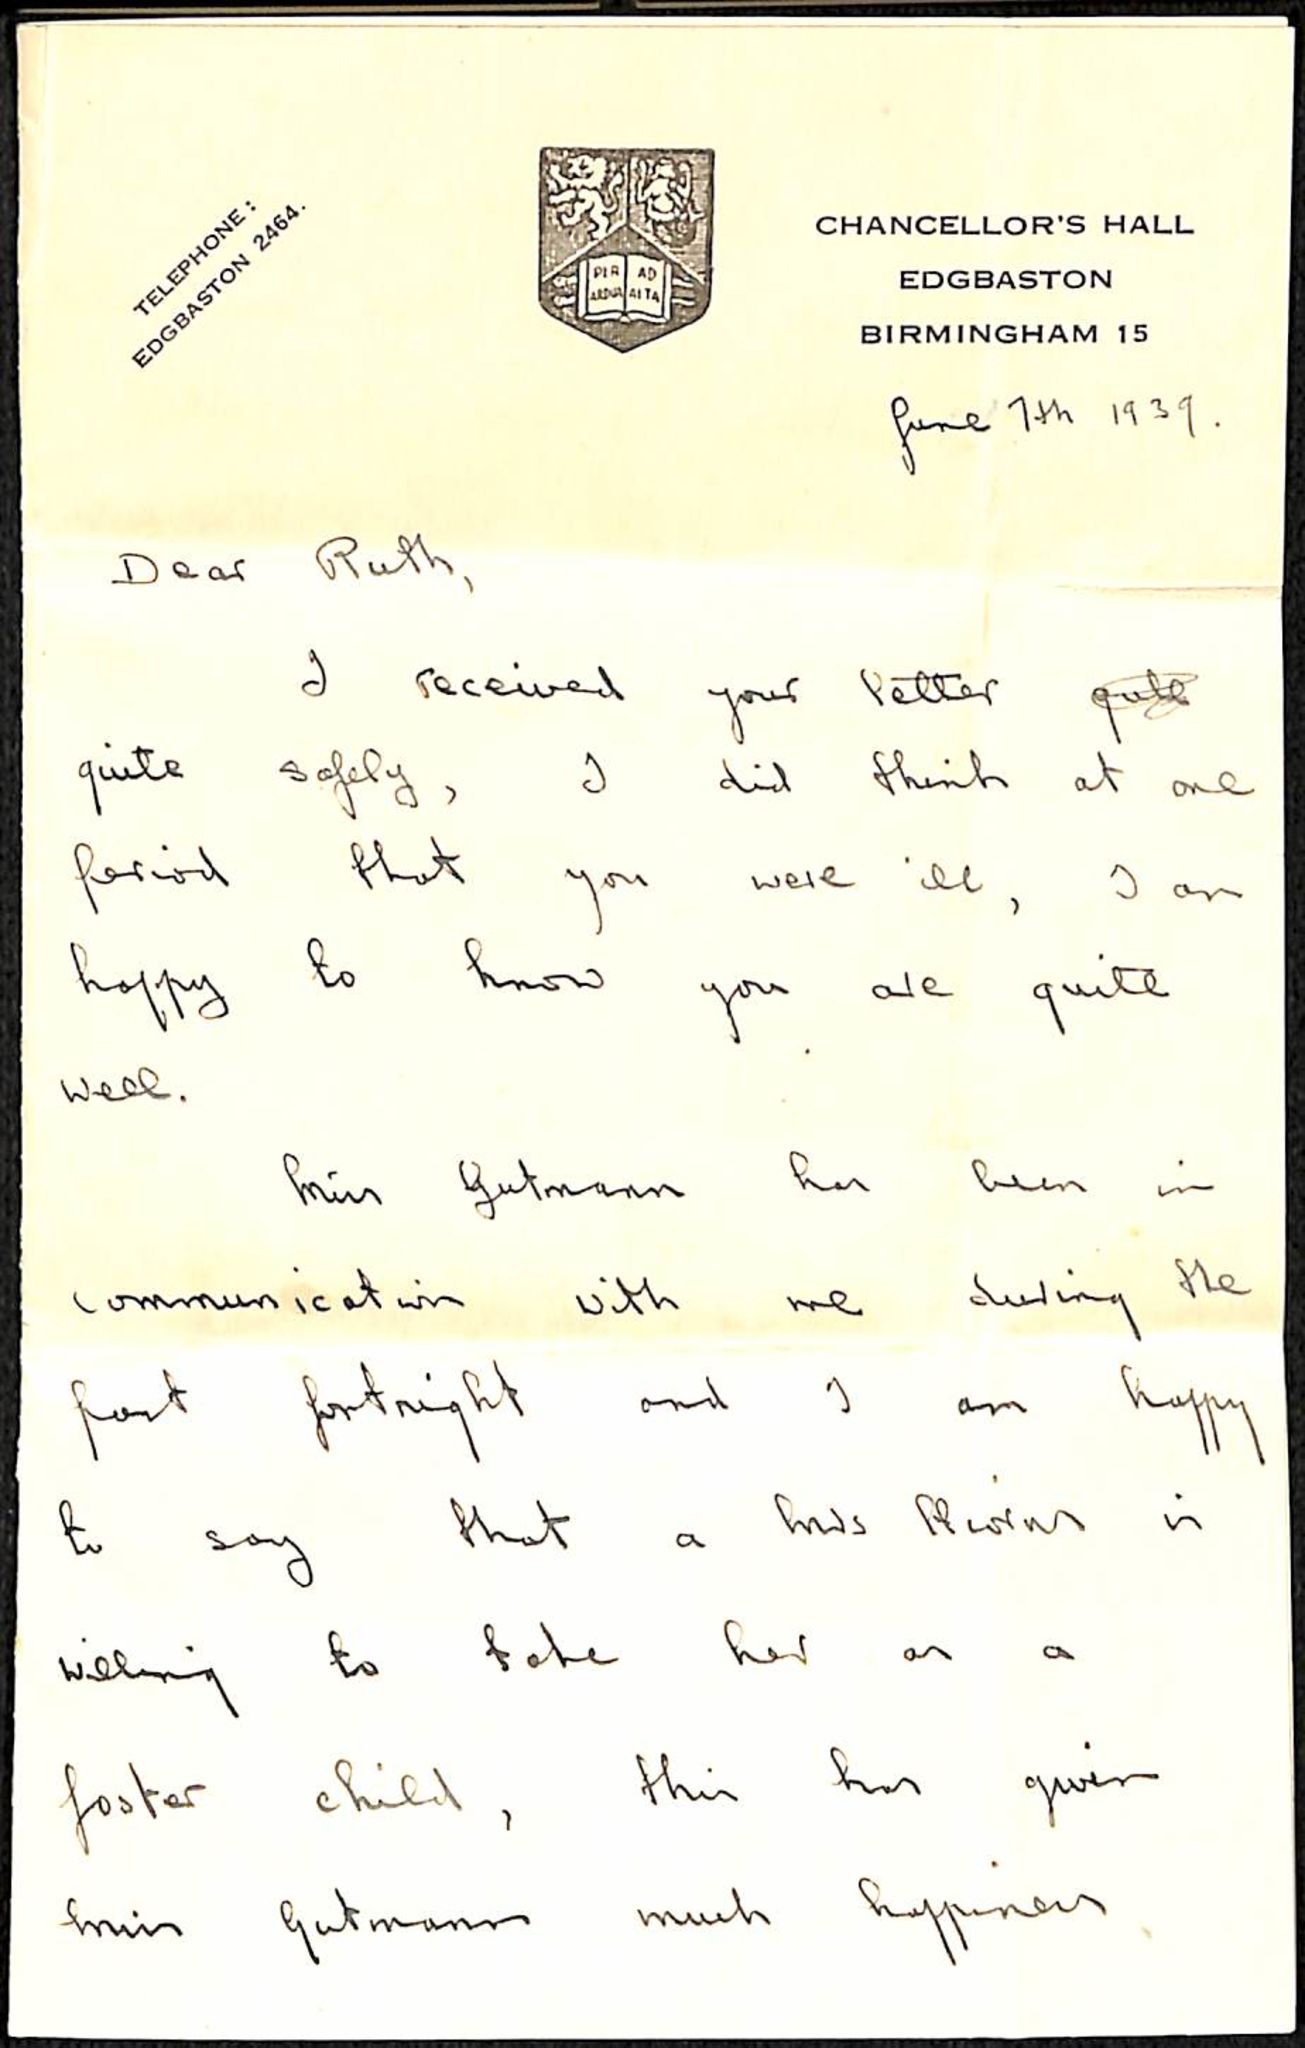 TELEPHONE:
EDGBASTON 2464.
PER AD
ARDUA ALTA
CHANCELLOR'S HALL
EDGBASTON
BIRMINGHAM 15
June 7th 1939.
Dear Ruth,
I received your letter quite
quite safely, I did think at one
period that you were ill, I am
happy to know you are quite
well.
Miss Gutmann has been in
communication with me during the
past fortnight and I am happy
to say that a Mrs is
willing to take her as a
foster child, this has given
Miss Gutmann much happiness